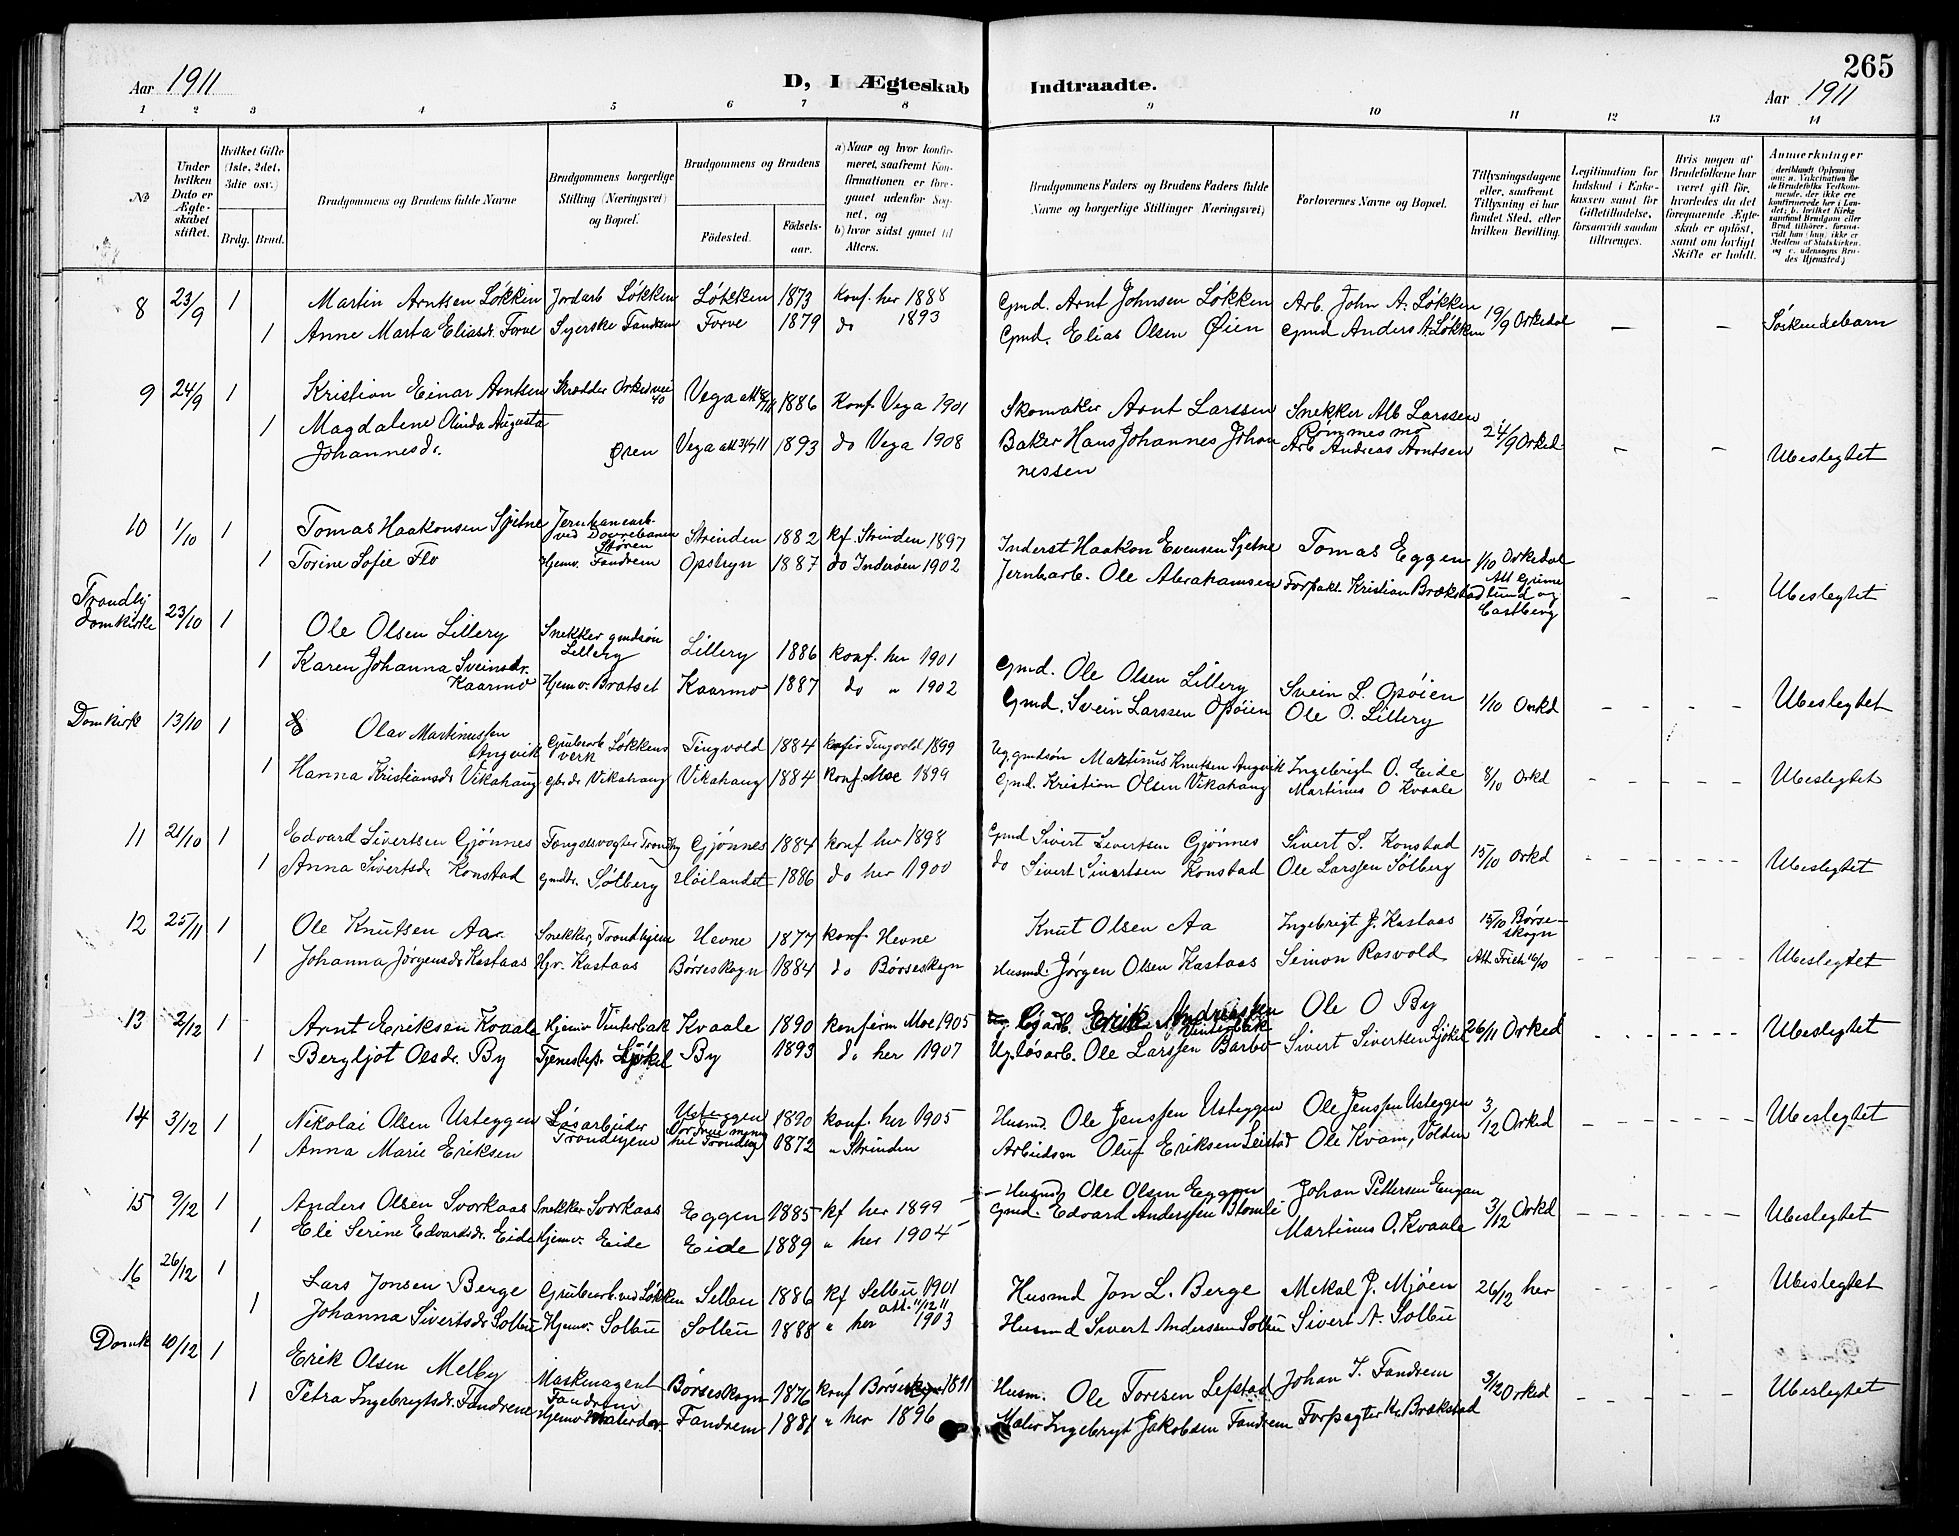 265
Aar 1911
D, I Ægteskab Indtraadte.
Aar 1911
1 2 3 4 5 6 7 8 9 10 11 12 13 14
No
Under hvilken Dato er Ægteskabet stiftet.
Hvilket Gifte (1ste, 2det, 3die osv.)
Brdg. Brud.
Brudgommens og Brudens fulde Navne
Brudgommens borgerlige Stilling (Næringsvei) og Bopæl.
Brudgommens og Brudens
Fødested.
Fødselsaar.
a) Naar og hvor konfirmeret, saafremt Konfirmationen er foregaaet udenfor Sognet, og
b) hvor sidst gaaet til Alters.
Brudgommens Faders og Brudens Faders fulde Navne og borgerlige Stillinger (Næringsvei)
Forlovernes Navne og Bopæl.
Tillysningsdagene eller, saafremt Tillysning ei har fundet Sted, efter hvilken Bevilling.
Legitimation for Indskud i Enkekassen samt for Giftetilladelse, forsaavidt saadan tiltrænges.
Hvis nogen af Brudefolkene har været gift før, hvorledes da det foregaaende Ægteskab er opløst, samt om lovligt Skifte er holdt.
Anmerkninger
8 23/9 1 Martin Arntsen Løkkin Jordarb Løkken Løkken 1873 Konf. her 1888 Gmd. Arnt Johnsen Løkken Arb. John A. Løkken 19/9 Orkedal – – Søskendebarn
1 Anne Marta Eliasdr. Forve Syerske Fandrem Forve 1879 do 1893 Gmd. Elias Olsen Øien Gmd Anders A. Løkken
9 24/9 1 Kristian Einar Arntsen Skrædder Orkedvei 40 Vega 1886 Konf. Vega 1901 Skomaker Arnt Larssen Snekker Alb Larssen Rømmesmo 24/9 Orked. – – Ubeslegtet
1 Magdalene Olinda Augusta Johannesdr. Øren Vega 1893 do Vega 1908 Baker Hans Johannes Johannessen Arb Andreas Arntsen
10 1/10 1 Tomas Haakonsen Sjetne Jernbanearb. ved Dovrebanen Støren Strinden 1882 kf. Strinden 1897 Inderst Haakon Evensen Sjetne Tomas Eggen 1/10 Orkedal
1 Torine Sofie Flo Hjemv. Fandrem Opstryn 1887 do Inderøen 1902 Jernbarb. Ole Abrahamsen Forpakt. Kristian Brækstad Att Grimelund og Castberg – – Ubeslegtet
Trondhj Domkirke 23/10 1 Ole Olsen Lillery Snekker gmdsøn Lillery Lillery 1886 konf. her 1901 Gmd. Ole Olsen Lillery Svein L. Opøien 1/10 Orkd – – – – Ubeslegtet
1 Karen Johanna Sveinsdr. Kaarmo Hjemv. Bratset Kaarmo 1887 do " 1902 Gmd. Svein Larssen Opøien Ole O. Lillery
Domkirk 13/10 1 Olav Martinussen Angvik Grubearb Løkkens verk Tingvold 1884 konfir Tingvold 1899 Ug gmdsøn Martinus Knutsen Angvik Ingebrigt O. Eide 8/10 Orkd – – – – Ubeslegtet
1 Hanna Kristiansdr Vikahaug gbrdr Vikahaug Vikahaug 1884 konf Moe 1899 Gmd. Kristian Olsen Vikahaug Martinus O Kvaale
11 21/10 1 Edvard Sivertsen Gjønnes Fængselsvogter Trondhj Gjønnes 1884 konf her 1898 Gmd Sivert Sivertsen Gjønnes Sivert S. Konstad 15/10 Orkd – – – – Ubeslegtet
1 Anna Sivertsdr Konstad gmddr. Sølberg Høilandet 1886 do her 1900 do Sivert Sivertsen Konstad Ole Larssen Sølberg
12 25/11 1 Ole Knutsen Aa. Snekker, Trondhjem Hevne 1877 konf. Hevne Knut Olsen Aa Ingebrigt J. Kastaas 15/10 Børseskogn
1 Johanna Jørgensdr Kastaas Hjv. Kastaas Børseskogn 1884 do Børseskogn Husmd. Jørgen Olsen Kastaas Simon Rosvold Att. Frich 16/10 – – – – Ubeslegtet
13 2/12 1 Arnt Eriksen Kvaale Hjemv Vinterbak Kvaale 1890 konferm Moe 1905 Erik Andreassen Vinterbak Ole O By 26/11 Orked – – – – Ubeslegtet
1 Bergljot Olsdr. By Tjenestep. Sjøkel By 1893 do her 1907 Ug. løsarb. Ole Larssen Barbo Sivert Sivertsen Sjøkel
14 3/12 1 Nikolai Olsen Usteggen Løsarbeider Trondhjem Usteggen 1890 konf. her 1905 Husmd. Ole Jenssen Usteggen Ole Jenssen Usteggen 3/12 Orked – – – – Ubeslegtet
1 Anna Marie Eriksen Vor Frue menighet Trondhj 1872 " Strinden Arbeidsm Oluf Eriksen Leistad Ole Kvam, Volden
15 9/12 1 Anders Olsen Svorkaas Snekker Svorkaas Eggen 1885 kf her 1899 – Husmd Ole Olsen Eggen Johan Pettersen Engan 3/12 Orkd – – – – Ubeslegtet
1 Eli Serine Edvardsdr. Eide Hjemv. Eide Eide 1889 " her 1904 Gmd. Edvard Anderssen Blomli Martinus O. Kvaale
16 26/12 1 Lars Jonsen Berge Grubearb. ved Løkken Selbu 1886 kf Selbu 1901 att. 11/12 11 Husmd Jon L. Berge Mekal J. Mjøen 26/12 her – – – Ubeslegtet
1 Johanna Sivertsdr Solbu Hjemv. Solbu Solbu 1888 " her 1903 Husmd Sivert Anderssen Solbu Sivert A. Solbu
Domk 10/12 1 Erik Olsen Melby Maskinagent Fandrem Børseskogn 1876 konf Børse 1891 Husm. Ole Toresen Lefstad Johan I. Fandrem 3/12 Orked – – – – Ubeslegtet
1 Petra Ingebrigtsdr. Fandrem Hjemv Malerdtr. Fandrem 1881 " her 1896 Maler Ingebrigt Jakobsen Fandrem Forpagter K. Brækstad